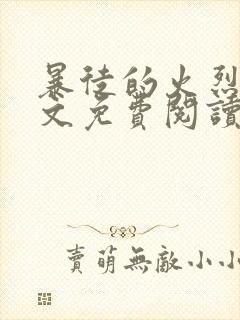 暴徒的火烈
文免費閱讀
賣萌無敵小小